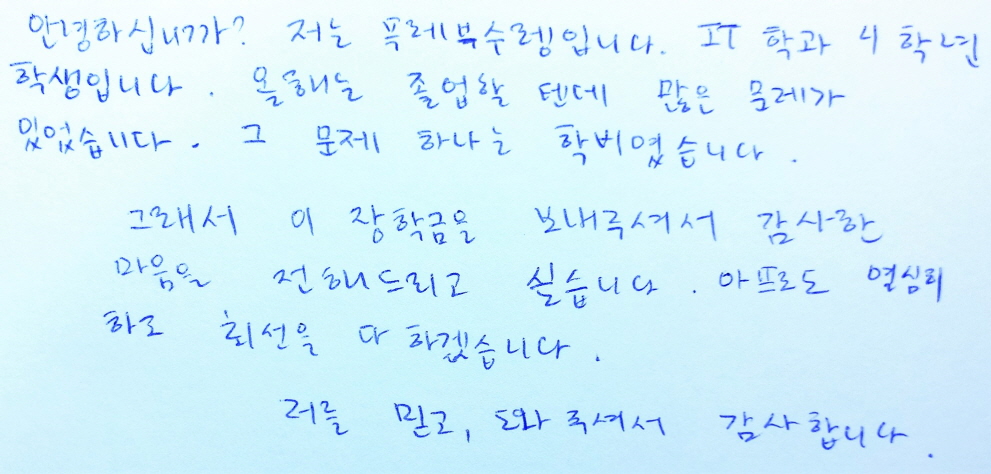 안녕하십니까? 저는 푸레부수렝입니다. IT 학과 4 학년
학생입니다. 올해는 졸업할 텐데 많은 문레가
있었습니다. 그 문제 하나는 학비였습니다.
그래서 이 장학금을 보내주셔서 감사한
마음을 전해드리고 싶습니다. 아프로도 열심히
하고 회선을 다 하겠습니다.
저를 믿고, 도와주셔서 감사합니다.